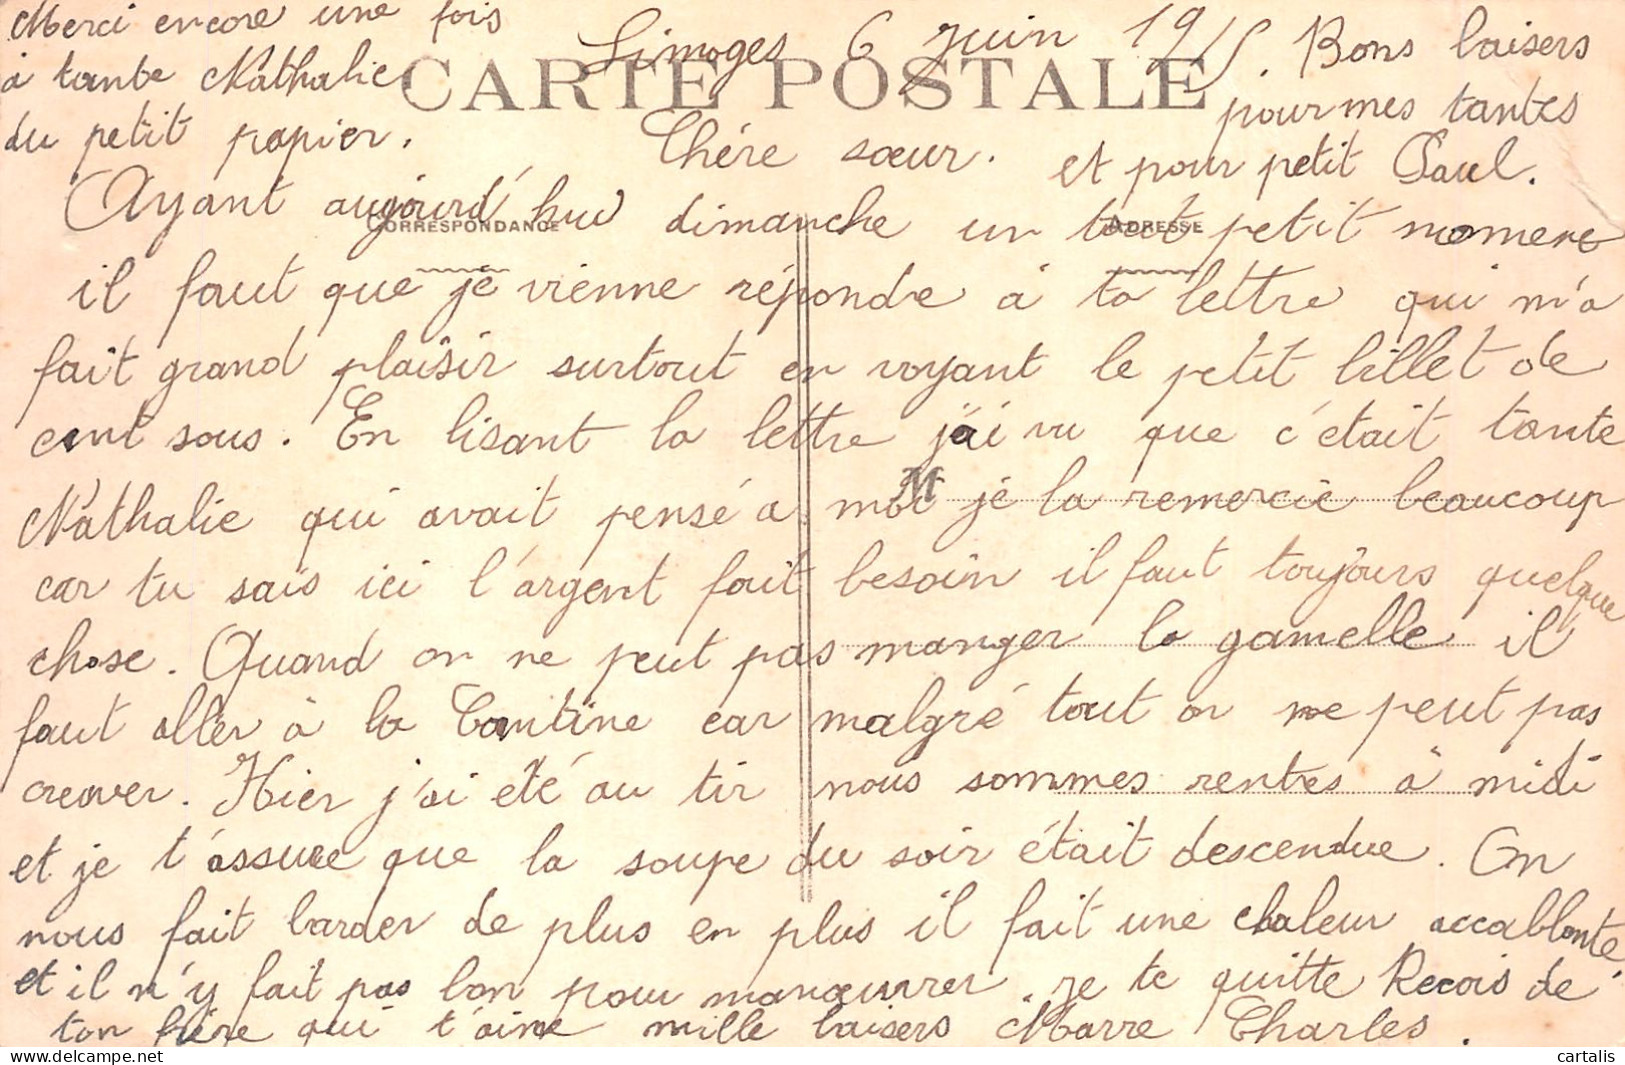 Merci encore une fois
à tante Nathalie
du petit papier.
CARTE POSTALE
Limoges 6 Juin 1915.
Bons baisers
pour mes tantes
et pour petit Paul.
Chére sœur.
CORRESPONDANCE
ADRESSE
Ayant aujourd'hui dimanche un tout petit moment
il faut que je vienne répondre à ta lettre qui m'a
fait grand plaisir surtout en voyant le petit billet de
cent sous. En lisant la lettre j'ai vu que c'était tante
M
Nathalie qui avait pensé a moi je la remercie beaucoup
car tu sais ici l'argent fait besoin il faut toujours quelque
chose. Quand on ne peut pas manger la gamelle il
faut aller à la Cantine car malgré tout on ne peut pas
crever. Hier j'ai été au tir nous sommes rentres à midi
et je t'assure que la soupe du soir était descendue. On
nous fait barder de plus en plus il fait une chaleur accablante
et il n'y fait pas bon pour manœuvrer. Je te quitte Recois de
ton frère qui t'aime mille baisers Marre Charles.
cartalis